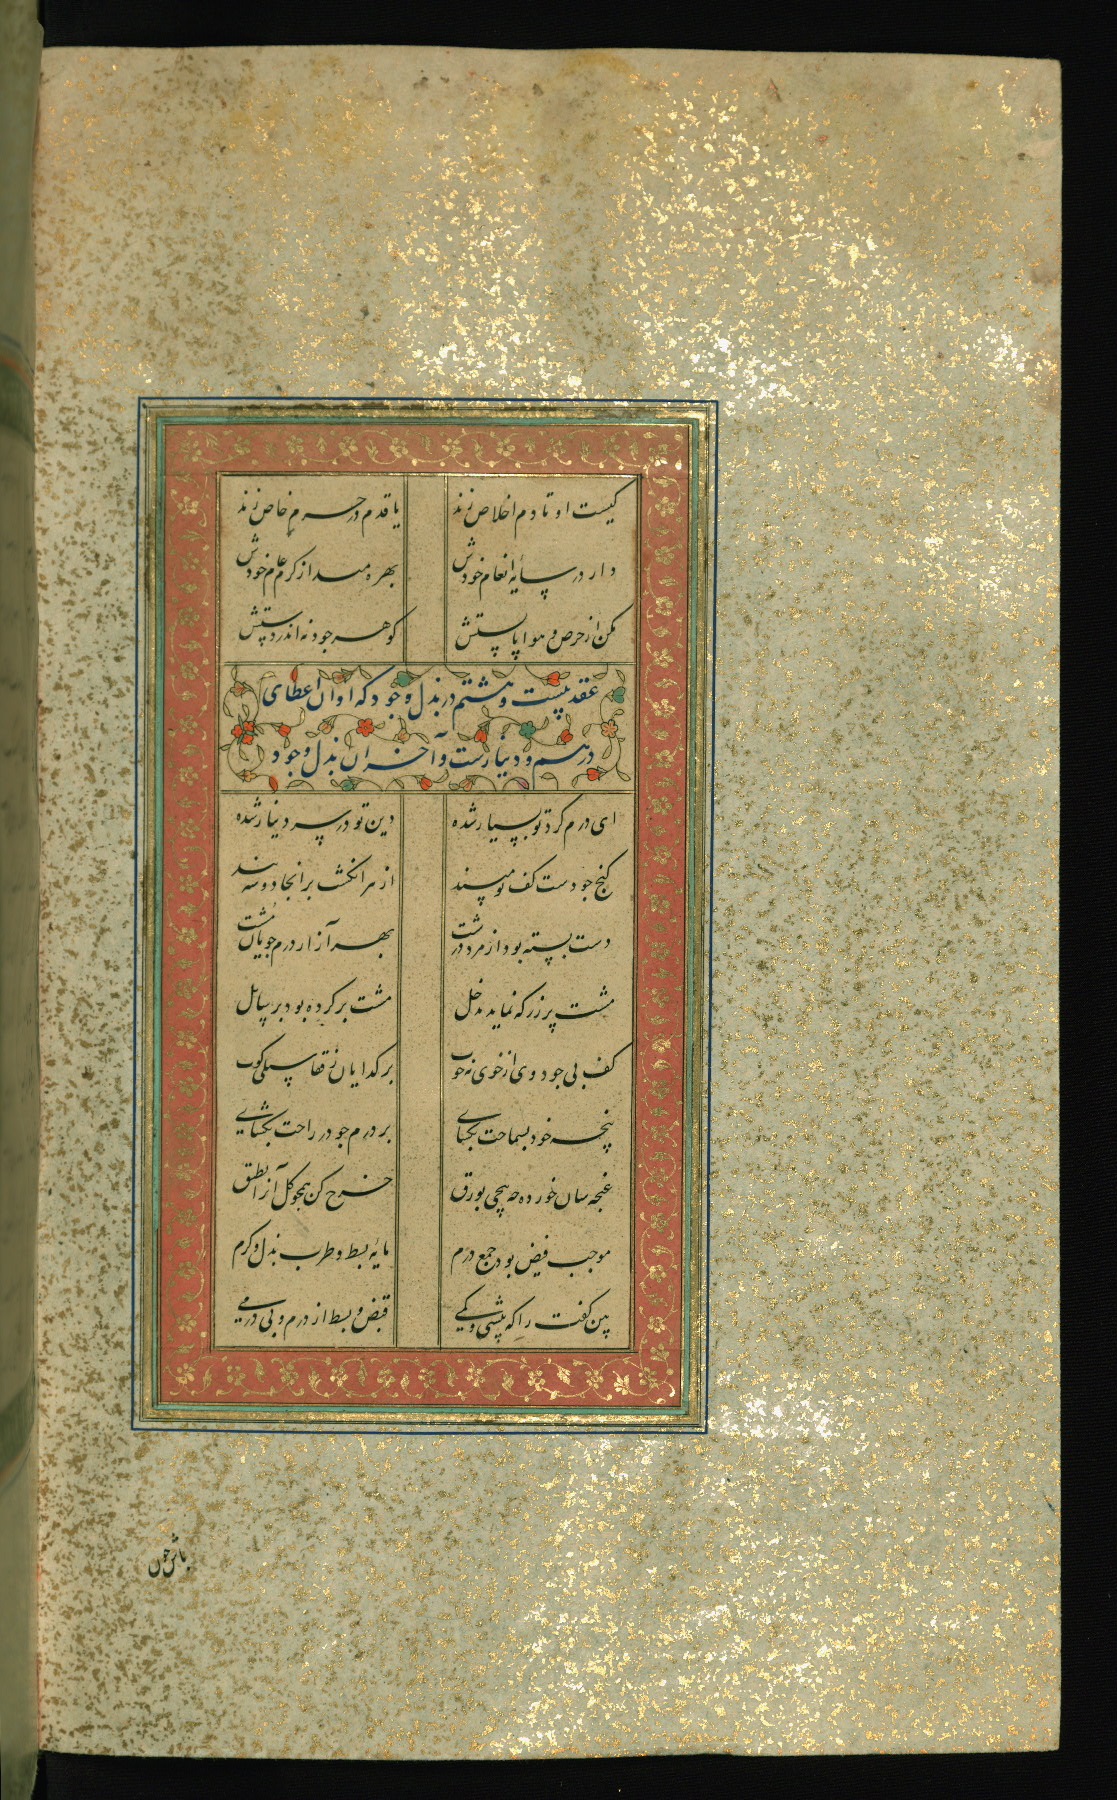 کیست او تا دم اخلاص زند یا قدم در حرم خاص زند
دار در سایه انعام خودش بهره مند از کرم عام خودش
مکن از حرص و هوا پا پستش گوهر جود نه اندر دستش
عقد بیست و هشتم در بذل وجود که اوان اعطای
درهم و دینارست و آخر ان بذل وجود
ای درم کرد تو بسیار شده دین تو در سر دینار شده
گنج جودست کف تو مپسند از هر انگشت بر انجا دو سه بند
دست بسته بود از مرد درشت بهر آزار درم جویان مشت
مشت پر زر که نماید مدخل مشت بر کرده بود بر سایل
کف بی جود وی از خوی نه خوب بر گدایان ز قفا سیلی کوب
پنجه خود بسماحت بگشای بر درم جو در راحت بگشای
غنچه سان خورده چه پیچی بورق خرج کن همچو گل آنرا بطبق
موجب قبض بود جمع درم مایه بسط و طرب بذل و کرم
بین کفت را که ببیشی و کمی قبض و بسط از درم و بی درمی
باش چون